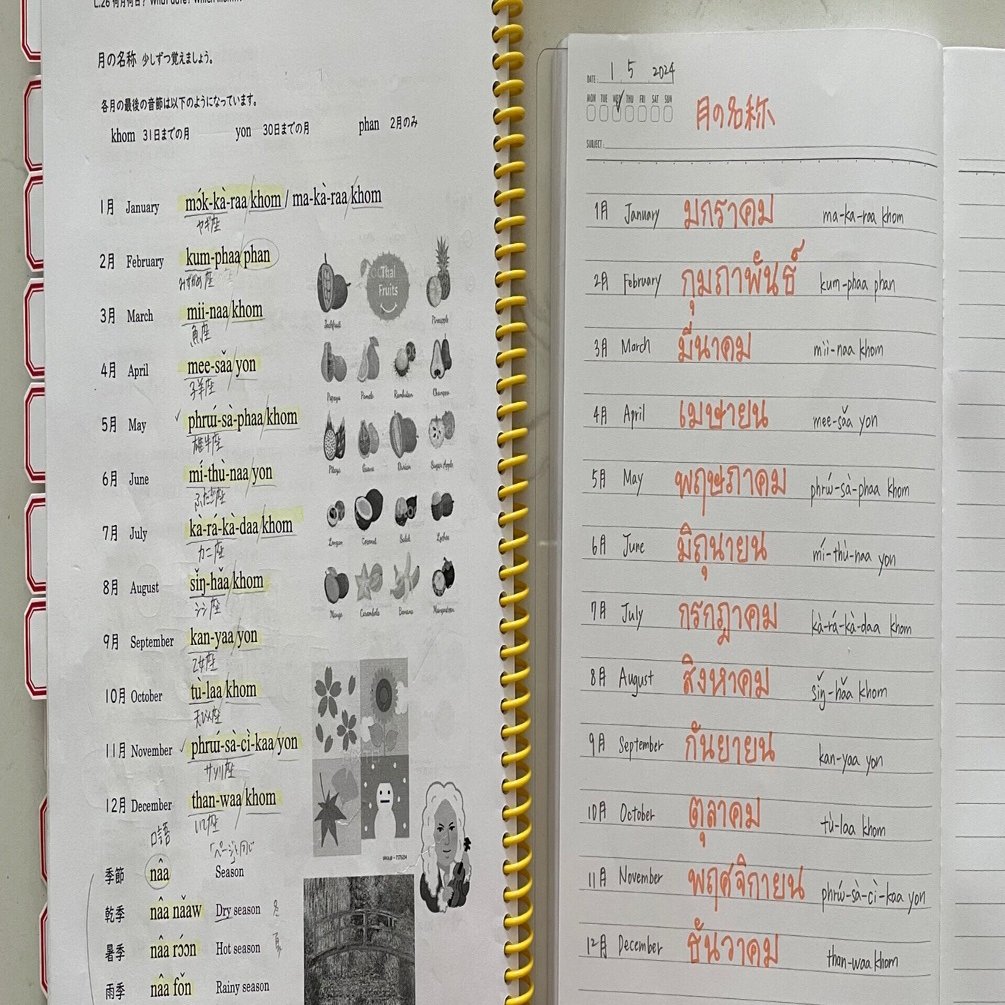 L.26 何月何日？ What date? Which
月の名称 少しずつ覚えましょう。
各月の最後の音節は以下のようになっています。
khom 31日までの月 yon 30日までの月 phan 2月のみ
1月 January mɔ́k-kà-raa/khom / ma-kà-raa/khom
ヤギ座
2月 February kum-phaa/phan
みずがめ座
3月 March mii-naa/khom
魚座
4月 April mee-sǎa/yon
子羊座
5月 May phrɯ́-sà-phaa/khom
牡牛座
6月 June mí-thù-naa/yon
ふたご座
7月 July kà-rá-kà-daa/khom
カニ座
8月 August sǐŋ-hǎa/khom
シシ座
9月 September kan-yaa/yon
乙女座
10月 October tù-laa/khom
天びん座
11月 November phrɯ́-sà-cì-kaa/yon
サソリ座
12月 December than-waa/khom
いて座
口語
季節 nâa Season
乾季 nâa nǎaw Dry season 冬
暑季 nâa rɔ́ɔn Hot season 夏
雨季 nâa fǒn Rainy season
Thai
Fruits
Jackfruit Pineapple
Papaya Pomelo Rambutan
Pitaya Guava Durian Sugar Apple
Longan Coconut Salak Lychee
Mango Carambola Banana Mangosteen
DATE: 1 5 2024
MON TUE WED THU FRI SAT SUN
月の名称
SUBJECT:
1月 January มกราคม ma-ka-raa khom
2月 February กุมภาพันธ์ kum-phaa phan
3月 March มีนาคม mii-naa khom
4月 April เมษายน mee-sǎa yon
5月 May พฤษภาคม phrɯ́-sà-phaa khom
6月 June มิถุนายน mí-thù-naa yon
7月 July กรกฎาคม kà-rá-kà-daa khom
8月 August สิงหาคม sǐŋ-hǎa khom
9月 September กันยายน kan-yaa yon
10月 October ตุลาคม tù-laa khom
11月 November พฤศจิกายน phrɯ́-sà-cì-kaa yon
12月 December ธันวาคม than-waa khom